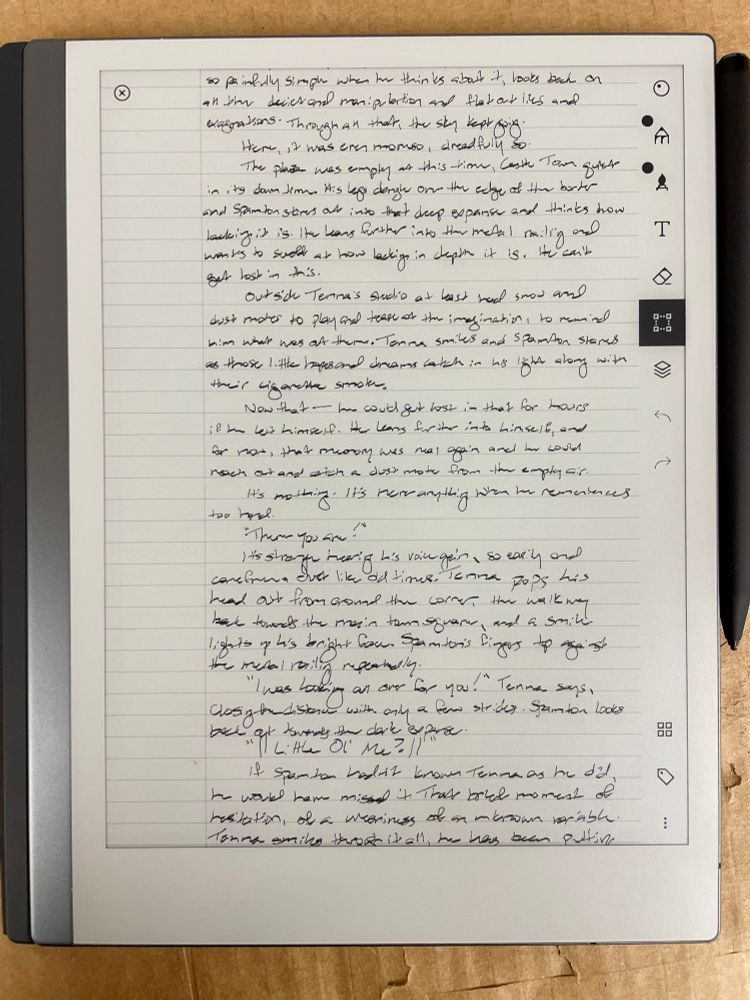 so painfully simple when he thinks about it, looks back on
all the deciet and manipulation and flat out lies and
exagerations. Through all that, the sky kept going.
Here, it was even moreso, dreadfully so.
The plaza was empty at this time, Castle Town quiet
in its down time. His legs dangle over the edge of the border
and Spamton stares out into that deep expanse and thinks how
lacking it is. He leans further into the metal railing and
wants to scoff at how lacking in depth it is. He can't
get lost in this.
Outside Tenna's studio at least had snow and
dust motes to play and tease at the imagination, to remind
him what was out there. Tenna smiles and Spamton stares
as those little hopes and dreams catch in his light along with
their cigarette smoke.
Now that — he could get lost in that for hours
if he let himself. He leans further into himself, and
for now, that memory was real again and he could
reach out and catch a dust mote from the empty air.
It's nothing. It's never anything when he remeniences
too hard.
"There you are!"
It's strange hearing his voice again, so easily and
carefree over like old times. Tenna pops his
head out from around the corner, the walkway
back towards the main town square, and a smile
lights up his bright face. Spamton's fingers tap against
the metal railing repeatedly.
"I was looking all over for you!" Tenna says,
closing the distance with only a few strides. Spamton looks
back out towards the dark expanse.
"|| Little Ol' Me? ||"
If Spamton hadn't known Tenna as he did,
he would have missed it. That brief moment of
hesitation, of a weariness of an unknown variable.
Tenna smiles through it all, he has been putting
T